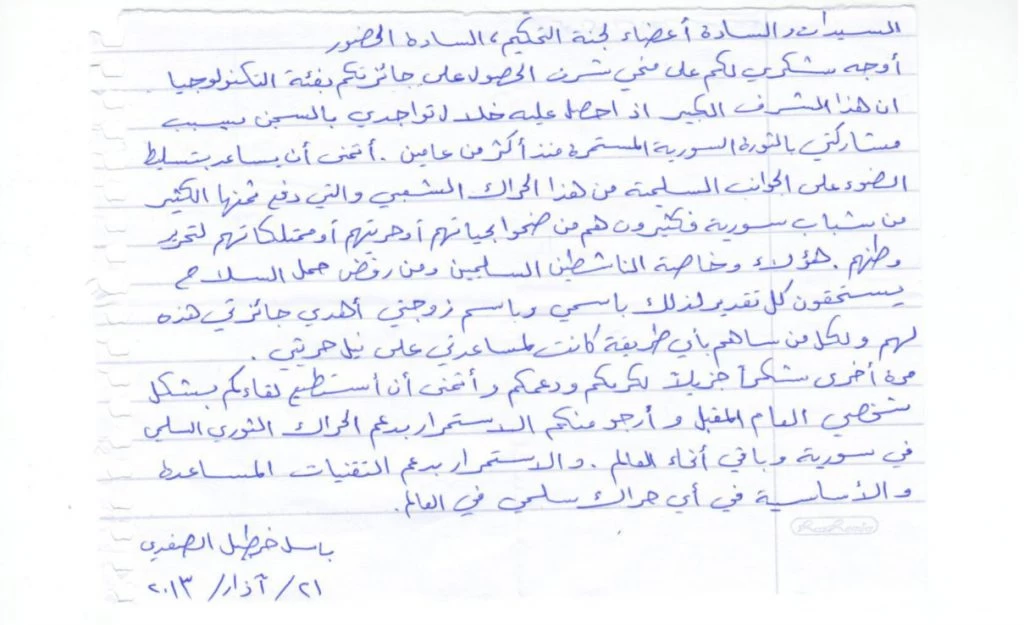 السيدات والسادة أعضاء لجنة التحكيم، السادة الحضور
أوجه شكري لكم على منحي شرف الحصول على جائزتكم بفئة التكنولوجيا
ان هذا لشرف كبير اذ احصل عليه خلال تواجدي بالسجن بسبب
مشاركتي بالثورة السورية المستمرة منذ أكثر من عامين. أتمنى أن يساعد بتسليط
الضوء على الجوانب السلمية من هذا الحراك الشعبي والتي دفع ثمنها الكثير
من شباب سورية فكثيرون هم من ضحوا بحياتهم أو حريتهم أو ممتلكاتهم لتحرير
وطنهم. هؤلاء وخاصة الناشطين السلميين ومن رفض حمل السلاح
يستحقون كل تقدير لذلك باسمي وباسم زوجتي أهدي جائزتي هذه
لهم ولكل من ساهم بأي طريقة كانت لمساعدتي على نيل حريتي.
مرة أخرى شكراً جزيلاً لكم ودعمكم وأتمنى أن أستطيع لقاءكم بشكل
شخصي العام المقبل وأرجو منكم الاستمرار بدعم الحراك الثوري السلمي
في سورية وباقي أنحاء العالم. والاستمرار بدعم التقنيات المساعدة
والأساسية في أي حراك سلمي في العالم.
باسل خرطبيل الصفدي
٢١/آذار/٢٠١٣